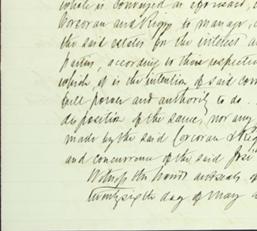 which is conveyed as aforesaid,
Corcoran and Riggs to manage,
the said estate for the interest a
parties, according to their respective
which it is the intention of said Cor
full power and authority to do.
disposition of the same, nor any
made by the said Corcoran & Rig
and concurrence of the said
Witness the hands and seals of
twenty sixth day of May